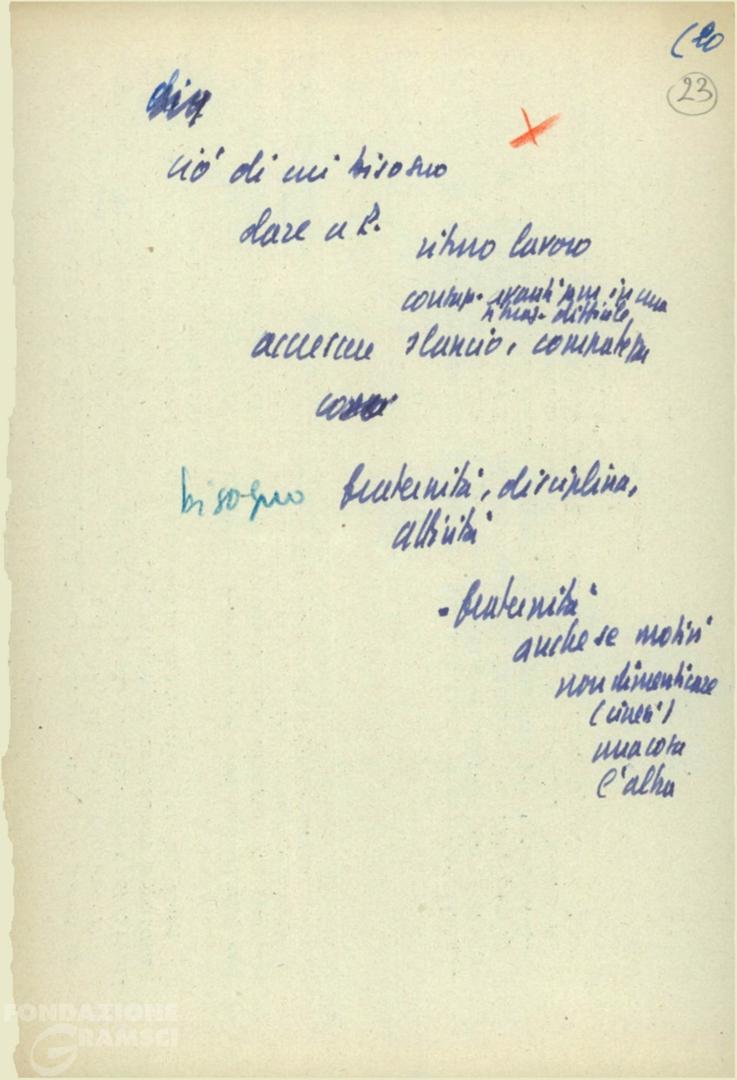 (20
23
ciò di cui bisogno
dare a P.
ritmo lavoro
compa. avanti in una
situaz. difficile,
accrescere slancio, compattezza
bisogno fraternità, disciplina,
attività
- fraternità
anche se motivi
non dimenticare
(cinesi)
una cosa
l'altra
FONDAZIONE
GRAMSCI